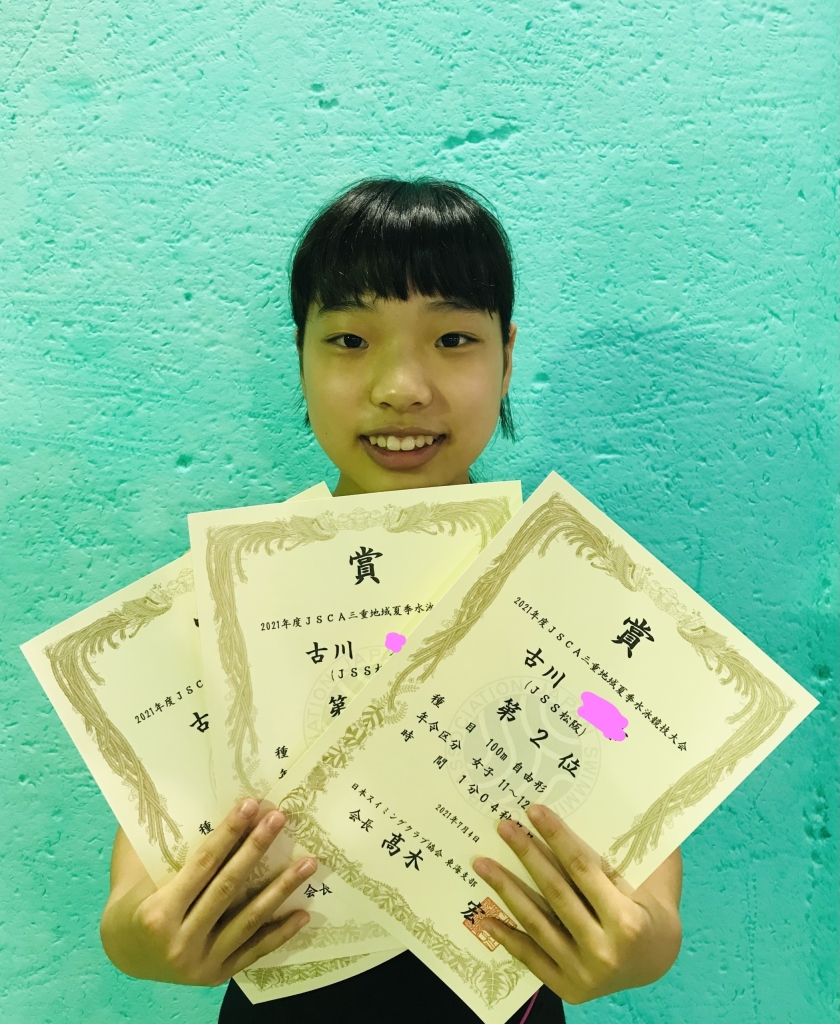 2021年度JSC
古
種
会長
賞
2021年度JSCA三重地域夏季水泳
古川
(JSS松
第
種
賞
2021年度JSCA三重地域夏季水泳競技大会
古川
(JSS松阪)
第2位
種 目 100m 自由形
年令区分 女子 11～12
時 間 1分04秒
2021年7月4日
日本スイミングクラブ協会 東海支部
会長 髙木 宏